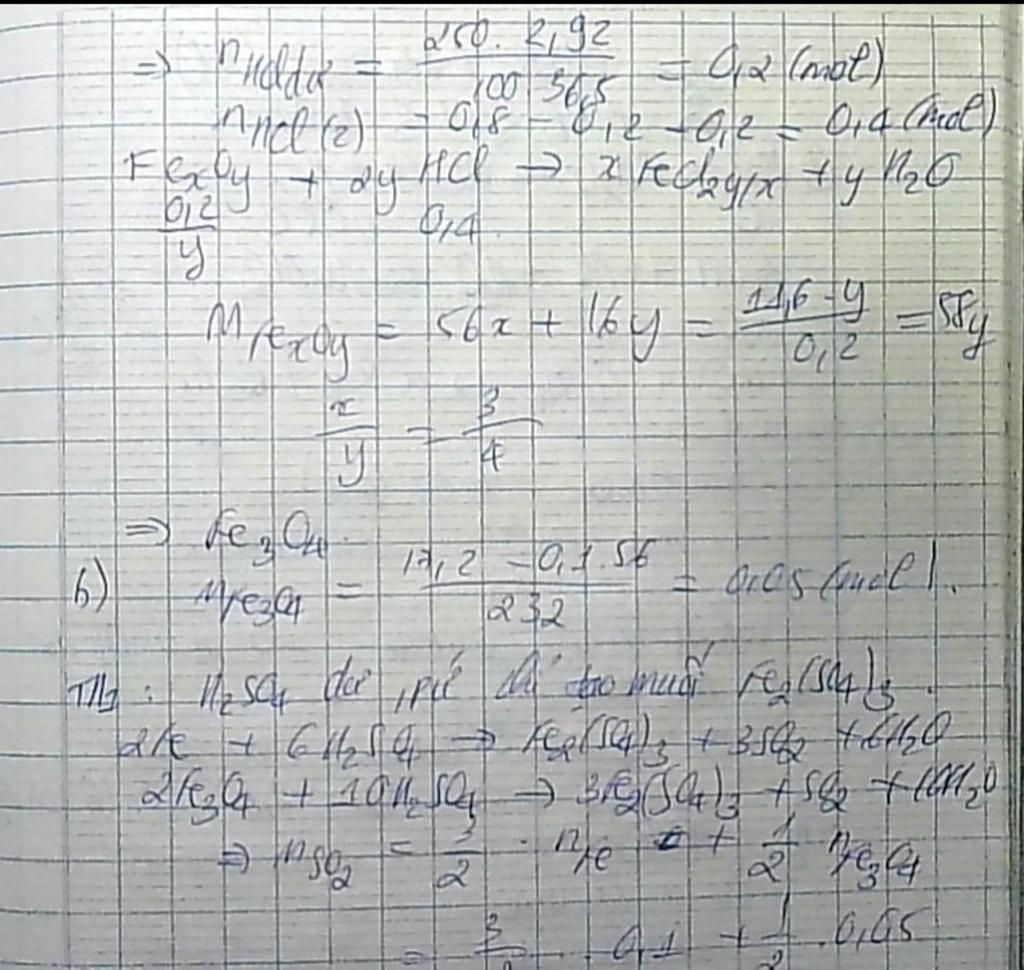 ⇒ nHCl dư = 250. 2,92 / 100 36,5 = 0,2 (mol)
nHCl (2) = 0,8 - 0,2 - 0,2 = 0,4 (mol)
FexOy + 2y HCl → x FeCl2y/x + y H2O
0,2/y 0,4
MFexOy = 56x + 16y = 11,6 . y / 0,2 = 58y
x/y = 3/4
⇒ Fe3O4.
b) nFe3O4 = 17,2 - 0,1.56 / 232 = 0,05 (mol).
TH1: H2SO4 dư, pứ tạo muối Fe2(SO4)3.
2Fe + 6H2SO4 → Fe2(SO4)3 + 3SO2 + 6H2O
2Fe3O4 + 10H2SO4 → 3Fe2(SO4)3 + SO2 + 10H2O
⇒ nSO2 = 3/2 . nFe + 1/2 nFe3O4
= 3/2 . 0,1 + 1/2 . 0,05